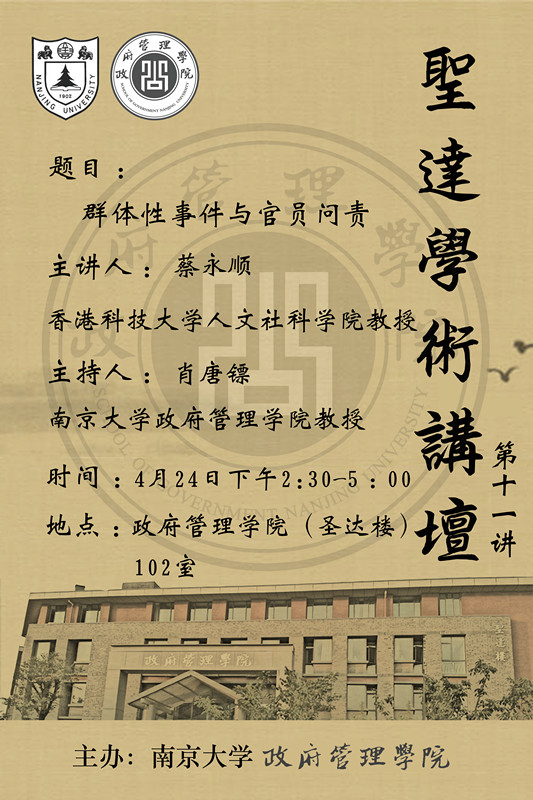 NANJING UNIVERSITY
1902
政府管理學院
SCHOOL OF GOVERNMENT NANJING UNIVERSITY
聖達學術講壇
第十一讲
题目：
群体性事件与官员问责
主讲人：蔡永顺
香港科技大学人文社科学院教授
主持人：肖唐镖
南京大学政府管理学院教授
时间：4月24日下午2:30-5：00
地点：政府管理学院（圣达楼）
102室
政府管理學院
SCHOOL OF GOVERNMENT NANJING UNIVERSITY
政府管理学院
圣达楼
主办：南京大学 政府管理學院